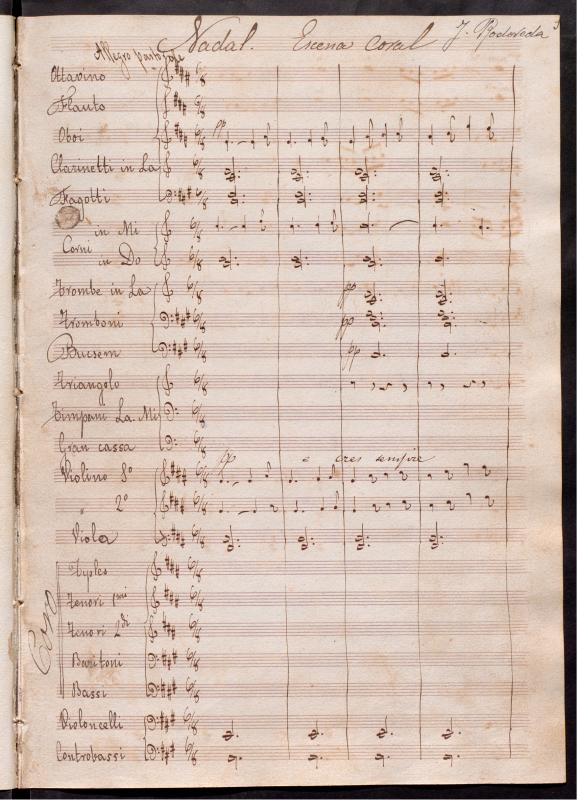 Nadal. Escena coral J. Rodoreda
Allegro pastorale
Ottavino
Flauto
Oboi
pp
Clarinetti in La
Fagotti
Corni
in Mi
in Do
Trombe in La
pp
Tromboni
pp
Bucsem
pp
Triangolo
Timpani La. Mi
Gran cassa
pp e cres sempre
Violino 1º
" 2º
Viola
Coro
Tiples
Tenori pmi
Tenori 2di
Baritoni
Bassi
Violoncelli
Contrabassi